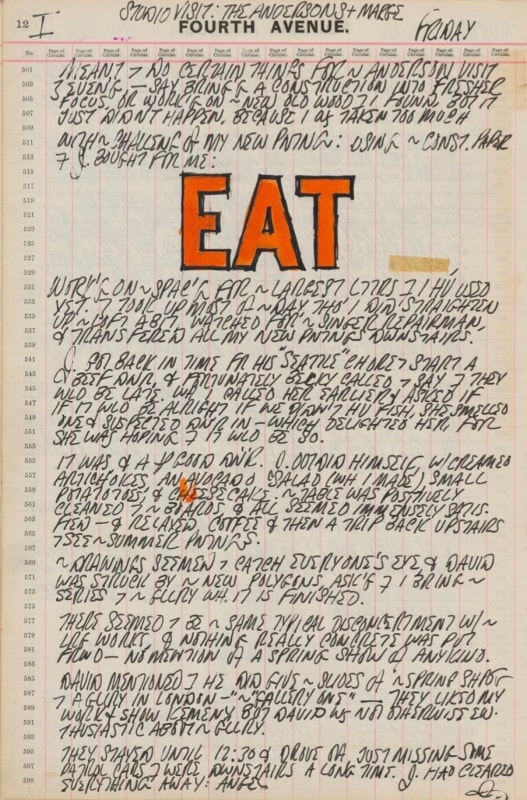 STUDIO VISIT: THE ANDERSONS + MARGE
12 I FOURTH AVENUE. FRIDAY
No. Page of Circular. Page of Circular. Page of Circular. Page of Circular. Page of Circular. Page of Circular. Page of Circular. Page of Circular. Page of Circular. Page of Circular. Page of Circular. Page of Circular.
501 MEANT > DO CERTAIN THINGS FOR ~ ANDERSON VISIT
503 EVENG, — SAY BRING A CONSTRUCTION INTO FRESHER
505 FOCUS, OR WORK'G ON ~ NEW OLD WOOD I FOUND, BUT IT
507 JUST DIDN'T HAPPEN, BECAUSE I WS TAKEN TOO MUCH
509
511 WITH ~ CHALLENG OF MY NEW PNTNG: USING ~ CONST. PAPER
513 J. BOUGHT FOR ME:
515
517
519
521
EAT
523
525
527
529
531 WORK'G ON ~ SPAC'G FOR ~ LARGEST LTTRS I HV USED
533 YET. TOOK UP MOST OF ~ DAY THO' I DID STRAIGHTEN
535 UP ~ LOFT A BIT, WATCHED FOR ~ SINGER REPAIRMAN,
537 & TRANSFERED ALL MY NEW PNTNGS DOWNSTAIRS.
539
541 J. GOT BACK IN TIME FR HIS "SEATTLE" CHORE > START A
543 BEEF DNR, & FORTUNATELY BECKY CALLED > SAY THEY
545 WLD BE LATE. WH I CALLED HER EARLIER & ASKED IF
547 IF IT WLD BE ALRIGHT IF WE DIDN'T HV FISH, SHE SMELLED
549 ONE & SUSPECTED DNR IN — WHICH DELIGHTED HER, FOR
551 SHE WAS HOPING IT WLD BE SO.
553
555 IT WAS, & A GOOD DNR. J. OUTDID HIMSELF, W/ CREAMED
557 ARTICHOKES, AN AVOCADO SALAD (WH I MADE), SMALL
559 POTATOTOES, & CHEESECAKE. ~ TABLE WAS POSITIVELY
561 CLEANED > ~ BOARDS & ALL SEEMED IMMENSELY SATIS-
563 FIED — & RELAXED, COFFEE & THEN A TRIP BACK UPSTAIRS
565 > SEE ~ SUMMER PNTNGS.
567
569 ~ DRAWINGS SEEMED > CATCH EVERYONE'S EYE & DAVID
571 WAS STRUCK BY ~ NEW POLYGONS, ASK'G I BRING ~
573 SERIES > ~ GLLRY WH IT IS FINISHED.
575
577 THERE SEEMED > BE ~ SAME TYPICAL DISCONCERTMENT W/ ~
579 LRG WORKS, & NOTHING REALLY CONCRETE WAS PUT
581 FRWD — NO MENTION OF A SPRING SHOW OR ANY KIND.
583
585 DAVID MENTIONED HE DID GIVE ~ SLIDES OF ~ SPRING
587 > A GLLRY IN LONDON — "~ "GALLERY ONE" — THEY LIKED MY
589 WORK & SHOW KEMENY, BUT DAVID WS NOT OTHERWISE EN-
591 THUSIASTIC ABOUT ~ GLLRY.
593
595 THEY STAYED UNTIL 12:30 & DROVE OFF, JUST MISSING SOME
597 PATROL CARS WERE DOWNSTAIRS A LONG TIME. J. HAD CLEARED
599 EVERYTHING AWAY: ANGEL.